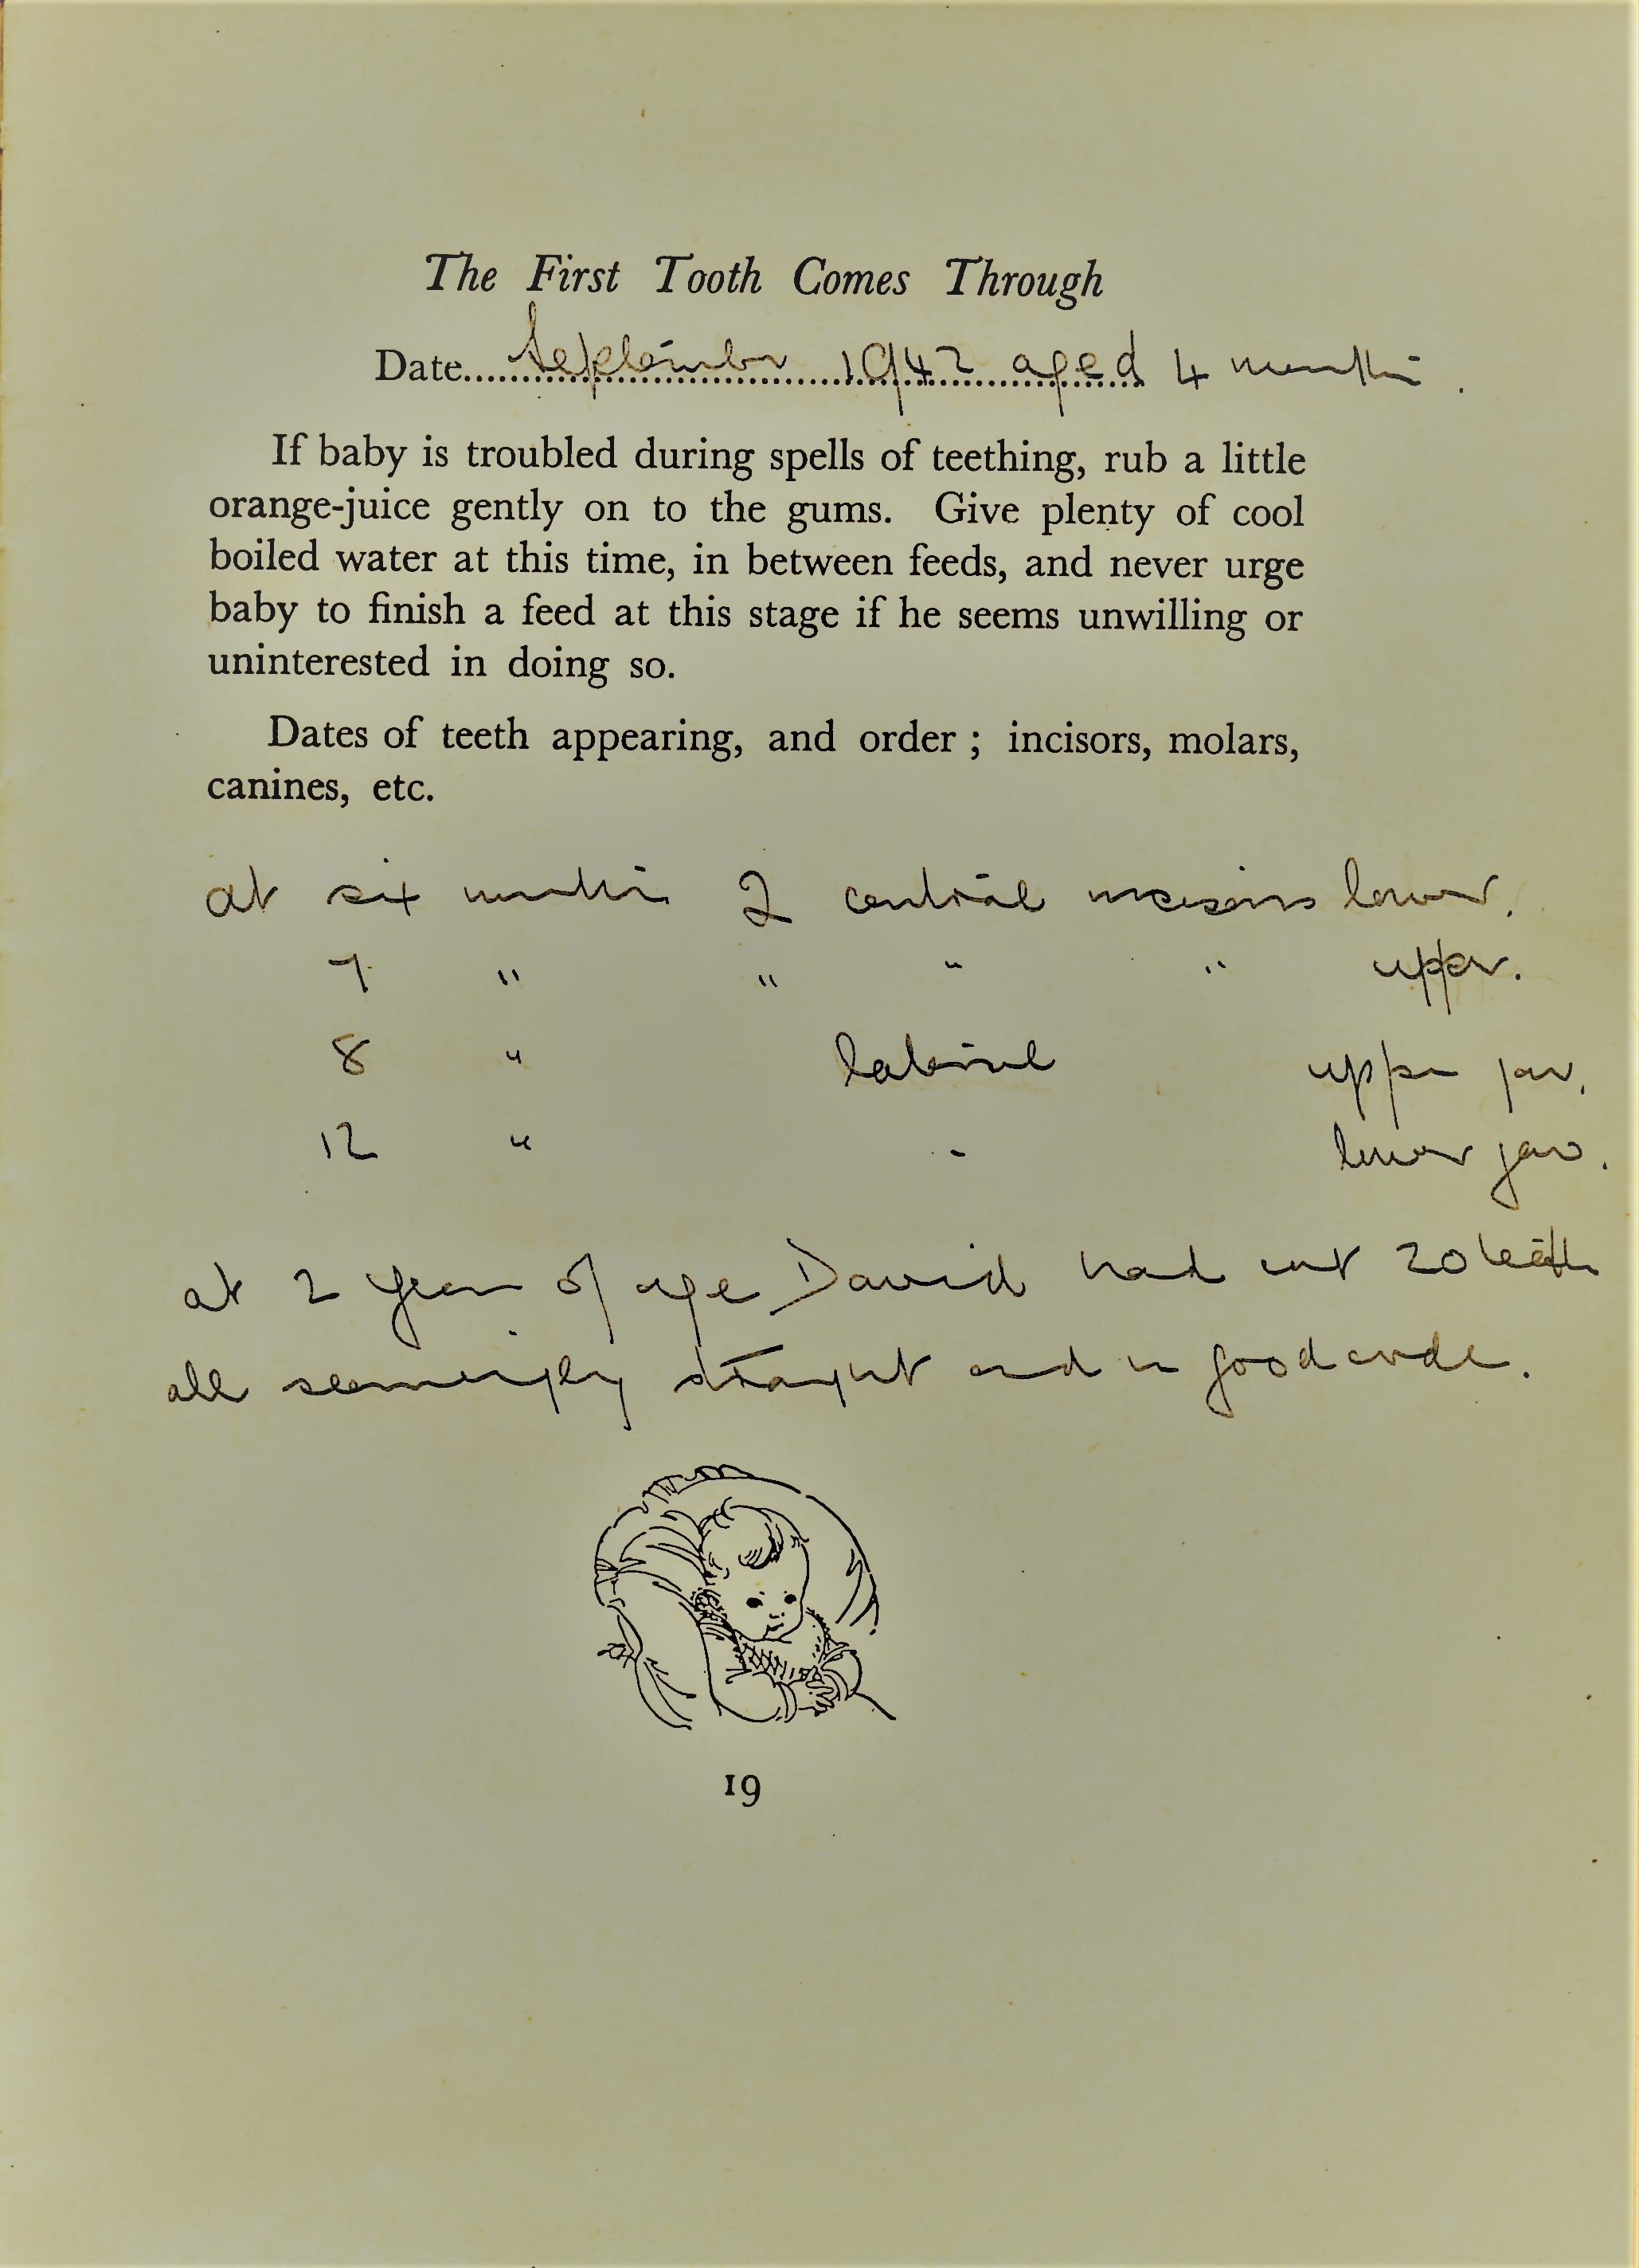 The First Tooth Comes Through
Date September 1942 aged 4 months.
If baby is troubled during spells of teething, rub a little
orange-juice gently on to the gums. Give plenty of cool
boiled water at this time, in between feeds, and never urge
baby to finish a feed at this stage if he seems unwilling or
uninterested in doing so.
Dates of teeth appearing, and order ; incisors, molars,
canines, etc.
at six months 2 central incisors lower.
7 " " " " upper.
8 " lateral upper jaw.
12 " " lower jaw.
at 2 years of age David had cut 20 teeth
all seemingly straight and in good order.
19